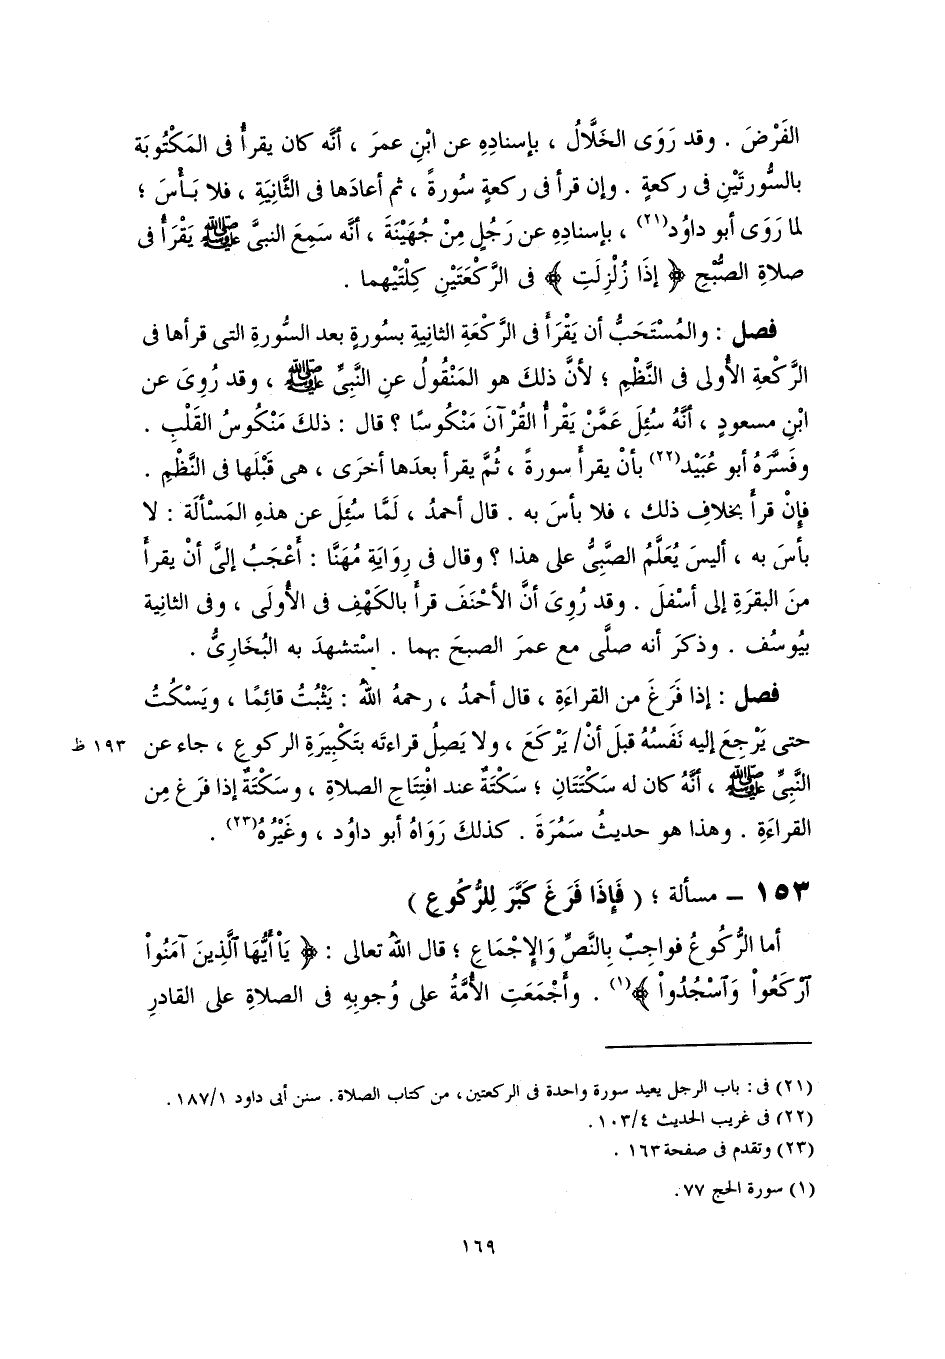 الفَرْضَ . وقد رَوَى الخَلَّالُ ، بإسنادِهِ عن ابْنِ عمرَ ، أنَّه كان يقرأُ فى المَكْتُوبَة
بالسُّورتَيْنِ فى ركعةٍ . وإن قرأ فى ركعةٍ سُورةً ، ثم أعادَها فى الثَّانِيَةِ ، فلا بَأْسَ ؛
لما رَوَى أبو داوُد(٢١) ، بإسنادِهِ عن رَجُلٍ مِنْ جُهَيْنَةَ ، أنَّه سَمِعَ النبىَّ ﷺ يَقْرَأُ فى
صلاةِ الصُّبْحِ ﴿ إذَا زُلْزِلَتِ ﴾ فى الرَّكْعَتَيْنِ كِلْتَيْهِما .
فصل : والمُسْتَحَبُّ أن يَقْرَأَ فى الرَّكْعَةِ الثانِيةِ بسُورةٍ بعد السُّورةِ التى قرأها فى
الرَّكْعةِ الأُولى فى النَّظْمِ ؛ لأنَّ ذلكَ هو المَنْقُولُ عنِ النَّبِىِّ ﷺ ، وقد رُوِىَ عن
ابْنِ مسعودٍ ، أنَّهُ سُئِلَ عَمَّنْ يَقْرأُ القُرْآنَ مَنْكُوسًا ؟ قال : ذلكَ مَنْكُوسُ القَلْبِ .
وفَسَّرَهُ أبو عُبَيْد(٢٢) بأنْ يقرأَ سورةً ، ثُمَّ يقرأ بعدَها أخرَى ، هى قَبْلَها فى النَّظْمِ .
فإِنْ قرأَ بخلافِ ذلك ، فلا بأسَ به . قال أحمدُ ، لَمَّا سُئِلَ عن هذهِ المَسْألَة : لا
بأسَ به ، أليسَ يُعَلَّمُ الصَّبِىُّ على هذا ؟ وقال فى رِوَايَةِ مُهَنَّا : أَعْجَبُ إلىَّ أنْ يقرأَ
منَ البقرَةِ إلى أسْفلَ . وقد رُوِىَ أنَّ الأحْنَفَ قرأَ بالكَهْفِ فى الأُولَى ، وفى الثانِية
بيُوسُف . وذكرَ أنه صلَّى مع عمرَ الصبحَ بهما . اسْتشهدَ به البُخَارِىُّ .
فصل : إذا فَرَغَ من القراءَةِ ، قال أحمدُ ، رحمهُ اللهُ : يَثْبُتُ قائِمًا ، ويَسْكُتُ
حتى يَرْجِعَ إليه نَفَسُهُ قبلَ أنْ/ يَرْكَعَ ، ولا يَصِلُ قراءتَه بتَكْبِيرَةِ الركوعِ ، جاء عن ١٩٣ ظ
النَّبِىِّ ﷺ ، أنَّهُ كان له سَكْتَتَانِ ؛ سَكْتَةٌ عند افْتِتَاحِ الصلاةِ ، وسَكْتَةٌ إذا فرَغ مِن
القراءَةِ . وهذا هو حديثُ سَمُرَةَ . كذلكَ رَوَاهُ أبو داوُد ، وغَيْرُهُ(٢٣) .
١٥٣ – مسألة ؛ ( فَإِذَا فَرَغَ كَبَّرَ لِلرُّكُوعِ )
أما الرُّكُوعُ فواجِبٌ بالنَّصِّ وَالإِجْمَاعِ ؛ قال اللهُ تعالى : ﴿ يَاْ أَيُّهَا ٱلَّذِينَ آمَنُواْ
ٱرْكَعُواْ وَٱسْجُدُواْ ﴾(١) . وأَجْمَعَتِ الأُمَّةُ على وُجوبِهِ فى الصلاةِ على القادرِ
(٢١) فى : باب الرجل يعيد سورة واحدة فى الركعتين ، من كتاب الصلاة . سنن أبى داود ١٨٧/١ .
(٢٢) فى غريب الحديث ١٠٣/٤ .
(٢٣) وتقدم فى صفحة ١٦٣ .
(١) سورة الحج ٧٧ .
١٦٩